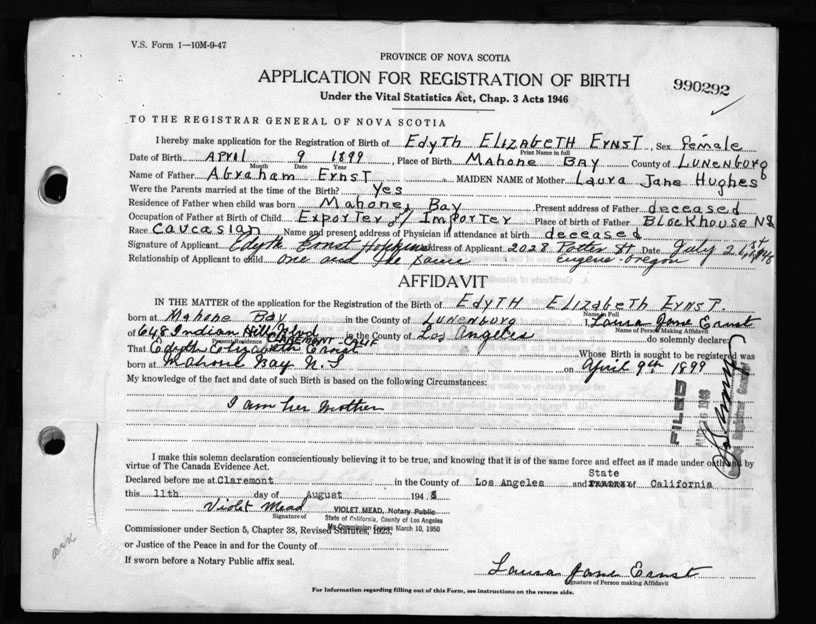 V.S. Form 1—10M-9-47
PROVINCE OF NOVA SCOTIA
APPLICATION FOR REGISTRATION OF BIRTH
990292
Under the Vital Statistics Act, Chap. 3 Acts 1946
TO THE REGISTRAR GENERAL OF NOVA SCOTIA
I hereby make application for the Registration of Birth of Edyth Elizabeth Ernst, Sex female
Print Name in full
Date of Birth April 9 1899, Place of Birth Mahone Bay County of Lunenburg
Month Date Year
Name of Father Abraham Ernst MAIDEN NAME of Mother Laura Jane Hughes
Were the Parents married at the time of the Birth? Yes
Residence of Father when child was born Mahone Bay Present address of Father deceased
Occupation of Father at Birth of Child Exporter & Importer Place of birth of Father Blockhouse NS
Race Caucasian Name and present address of Physician in attendance at birth deceased
Signature of Applicant Edyth Ernst Address of Applicant 2028 Potter St Date July 21st 1948
Relationship of Applicant to child one and the same Eugene-Oregon
AFFIDAVIT
IN THE MATTER of the application for the Registration of Birth of Edyth Elizabeth Ernst.
Name in Full
born at Mahone Bay in the County of Lunenburg I, Laura Jane Ernst
Name of Person Making Affidavit
of 648 Indian Hill Blvd in the County of Los Angeles do solemnly declare:
Present Residence CLAREMONT-CALIF
That Edyth Elizabeth Ernst Whose Birth is sought to be registered was
born at Mahone Bay N.S on April 9th 1899
My knowledge of the fact and date of such Birth is based on the following Circumstances:
I am her mother
FILED
I make this solemn declaration conscientiously believing it to be true, and knowing that it is of the same force and effect as if made under oath and by
virtue of The Canada Evidence Act.
State
Declared before me at Claremont in the County of Los Angeles and of California
this 11th day of August 1948
Violet Mead VIOLET MEAD, Notary Public
Signature of State of California, County of Los Angeles
My Commission Expires March 10, 1950
Commissioner under Section 5, Chapter 38, Revised Statutes, 1923,
or Justice of the Peace in and for the County of
If sworn before a Notary Public affix seal.
Laura Jane Ernst
Signature of Person making Affidavit
For Information regarding filling out of this Form, see instructions on the reverse side.